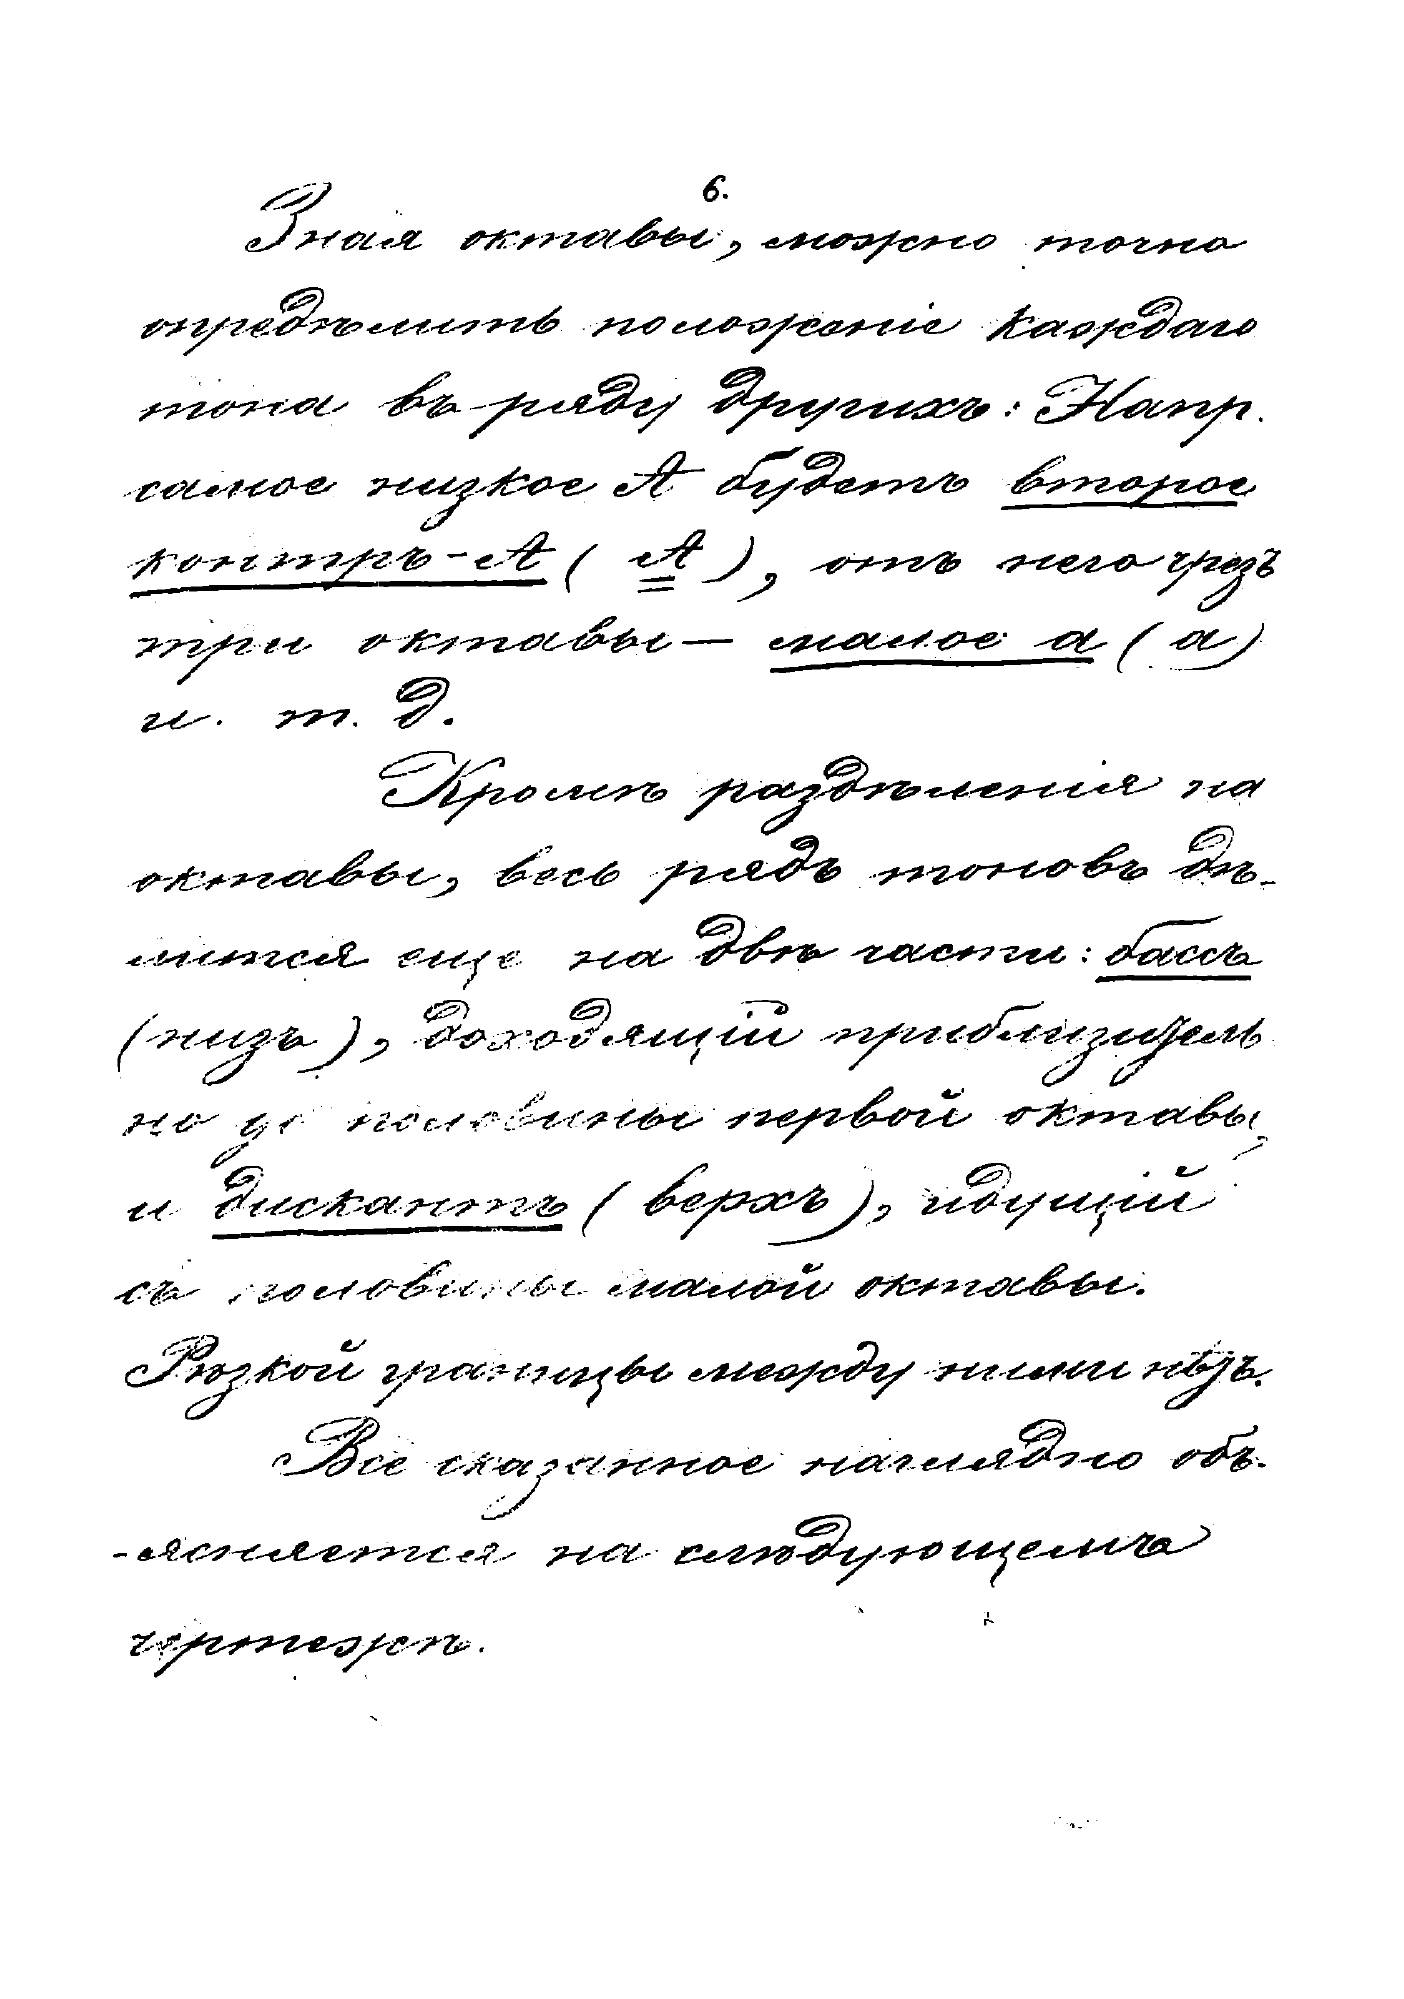 6.
Зная октавы, можно точно
опредѣлить положеніе каждаго
тона въ ряду другихъ: Напр.
самое низкое А будетъ второе
контръ-А ( А ), отъ него чрезъ
три октавы — малое а ( а )
и. т. д.
Кромѣ раздѣленія на
октавы, весь рядъ тоновъ дѣ-
лится еще на двѣ части: басъ
(низъ), доходящій приблизитель
но до половины первой октавы,
и дискантъ ( верхъ ), идущій
съ половины малой октавы.
Рѣзкой границы между ними нѣтъ.
Все сказанное наглядно объ-
-ясняется на слѣдующемъ
чертежѣ.